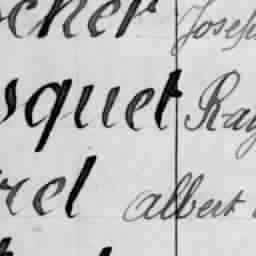 cher Joseph
squet Ray
rel Albert